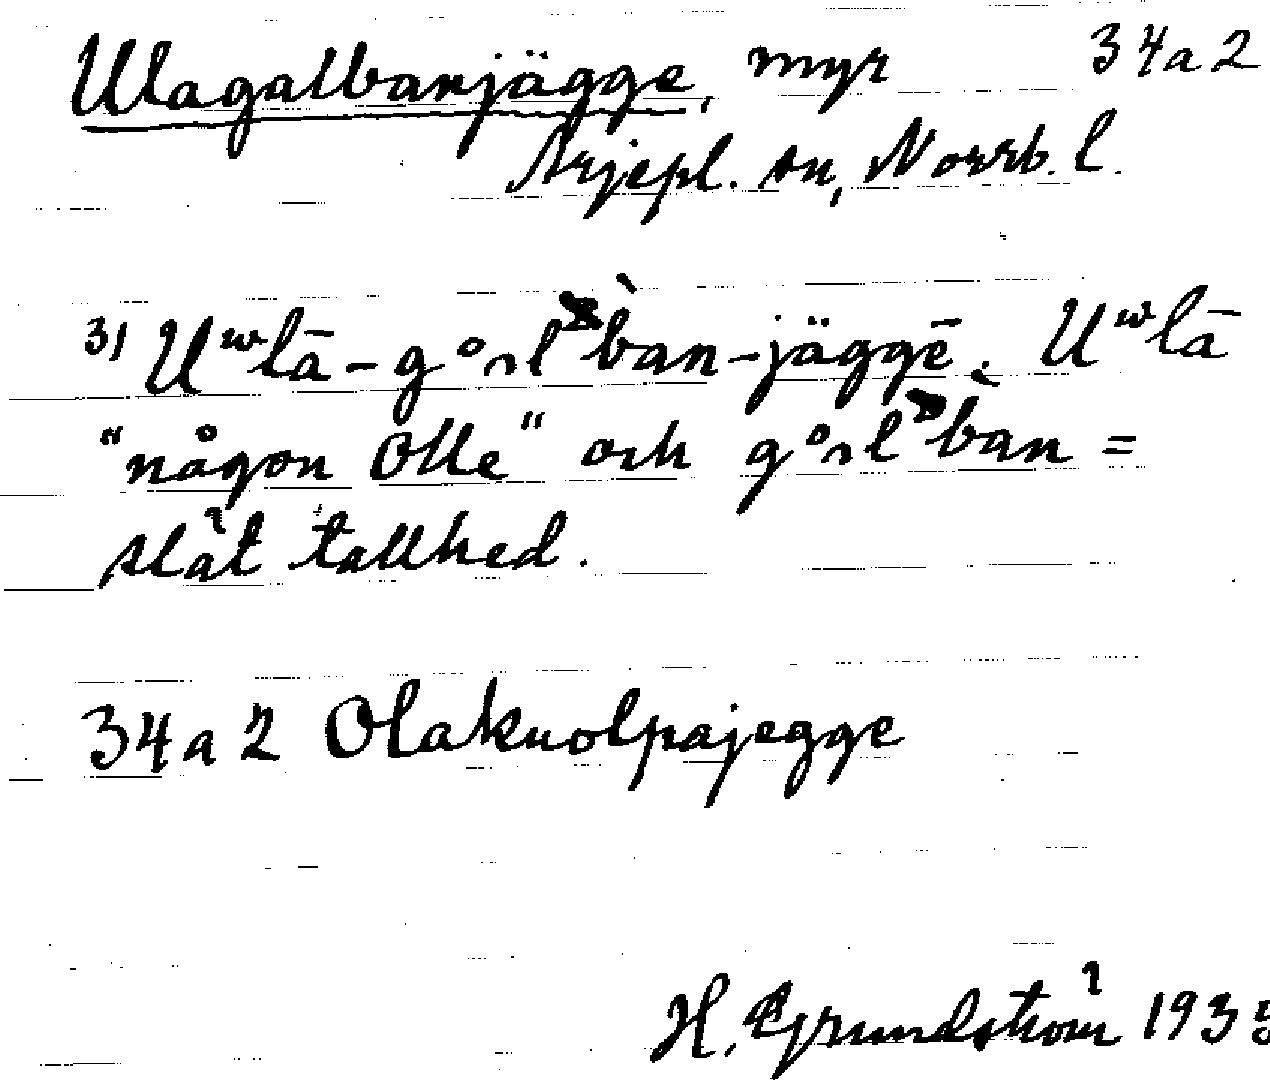 Ulagalbanjägge, myr 34a2
Arjepl. sn, Norrb. l.
31 Uʷlā-gålˈban-jäggē. Uʷlā
"någon Olle" och gålˈban =
slät tallhed.
34a2 Olakuolpajegge
H. Grundström 1935